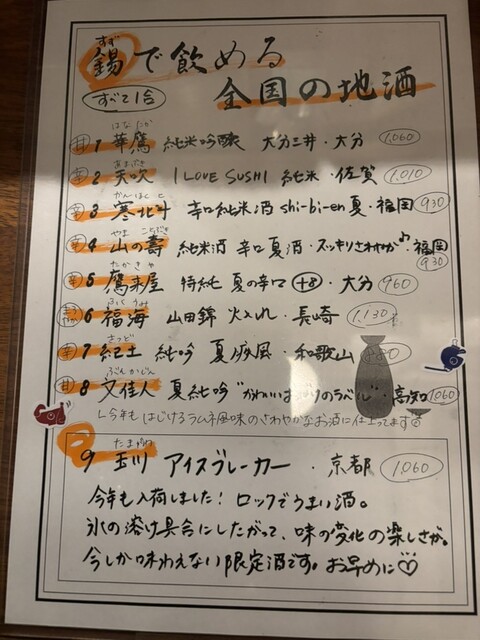 錫で飲める
すず
全国の地酒
すべて1合
はなたか
甘 1 華鷹 純米吟醸 大分三井・大分 1,060
あまぶき
辛 2 天吹 I LOVE SUSHI 純米・佐賀 1,010
かんほくと
辛 3 寒北斗 辛口純米酒 shi-bi-en 夏・福岡 930
やま ことぶき
辛 4 山の壽 純米酒 辛口 夏酒・スッキリさわやか♪ 福岡 930
たかきや
辛 5 鷹来屋 特純 夏の辛口 +8・大分 960
ふくうみ
6 福海 山田錦 火入れ・長崎 1,130
きっど
辛 7 紀土 純吟 夏ノ疾風・和歌山
ぶんかじん
甘 8 文佳人 夏純吟 "かわいい のラベル"・高知 1,060
└今年も はじけるラムネ風味のさわやかなお酒に仕上ってます☺
たまがわ
9 玉川 アイスブレーカー・京都 1,060
今年も入荷しました！ロックでうまい酒。
氷の溶け具合にしたがって、味の変化の楽しさが。
今しか味わえない限定酒です。お早めに♡